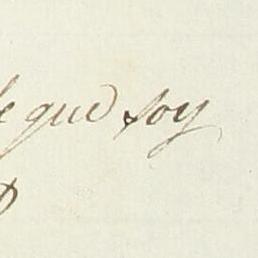 que soy